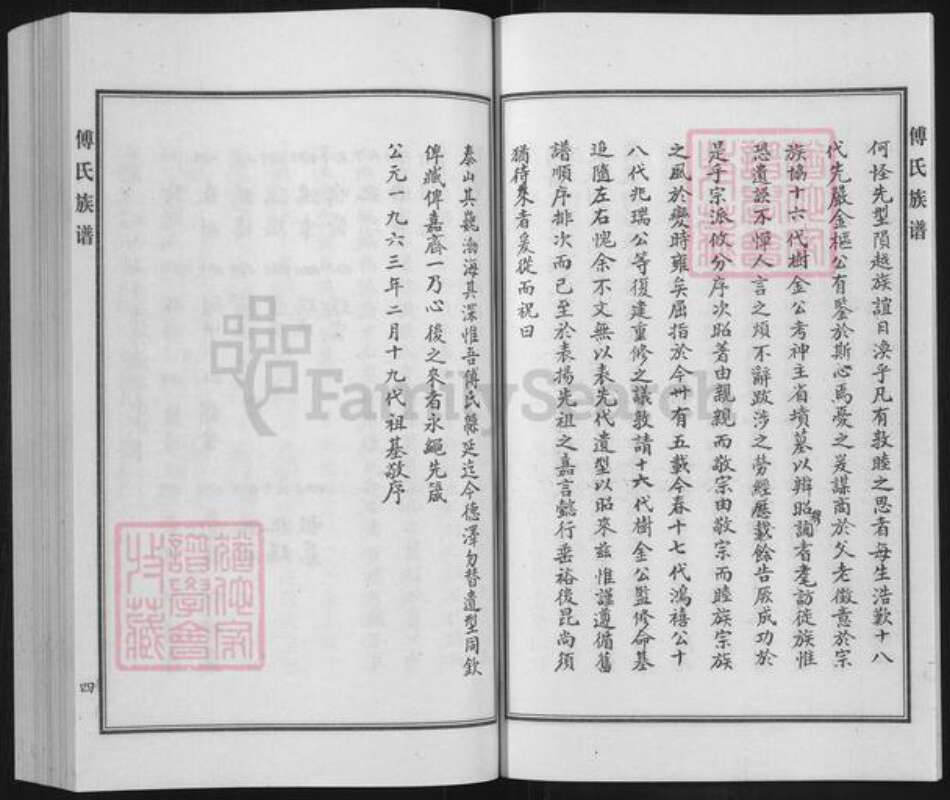 傅氏族谱
何怪先型隕越族誼日渙乎凡有敦睦之思者每生浩歎十八
代先嚴金樞公有鑒於斯心焉憂之爰謀商於父老徵意於宗
族協十六代樹金公考神主省墳墓以辨昭穆詢耆耄訪徒族惟
恐遺誤不憚人言之煩不辭跋涉之勞經歷載餘告厥成功於
是乎宗派攸分序次昭著由親親而敬宗由敬宗而睦族宗族
之風於變時雍矣屈指於今卅有五載今春十七代鴻禧公十
八代兆瑞公等復建重修之議敦請十六代樹金公監修命基
追隨左右愧余不文無以表先代遺型以昭來茲惟謹遵循舊
譜順序排次而已至於表揚先祖之嘉言懿行垂裕後昆尚須
猶待來者爰從而祝曰
泰山其巍渤海其深惟吾傅氏綿延迄今德澤勿替遺型同欽
俾臧俾嘉齋一乃心後之來者永繩先箴
公元一九六三年二月十九代祖基敬序
傅氏族谱
四
FamilySearch